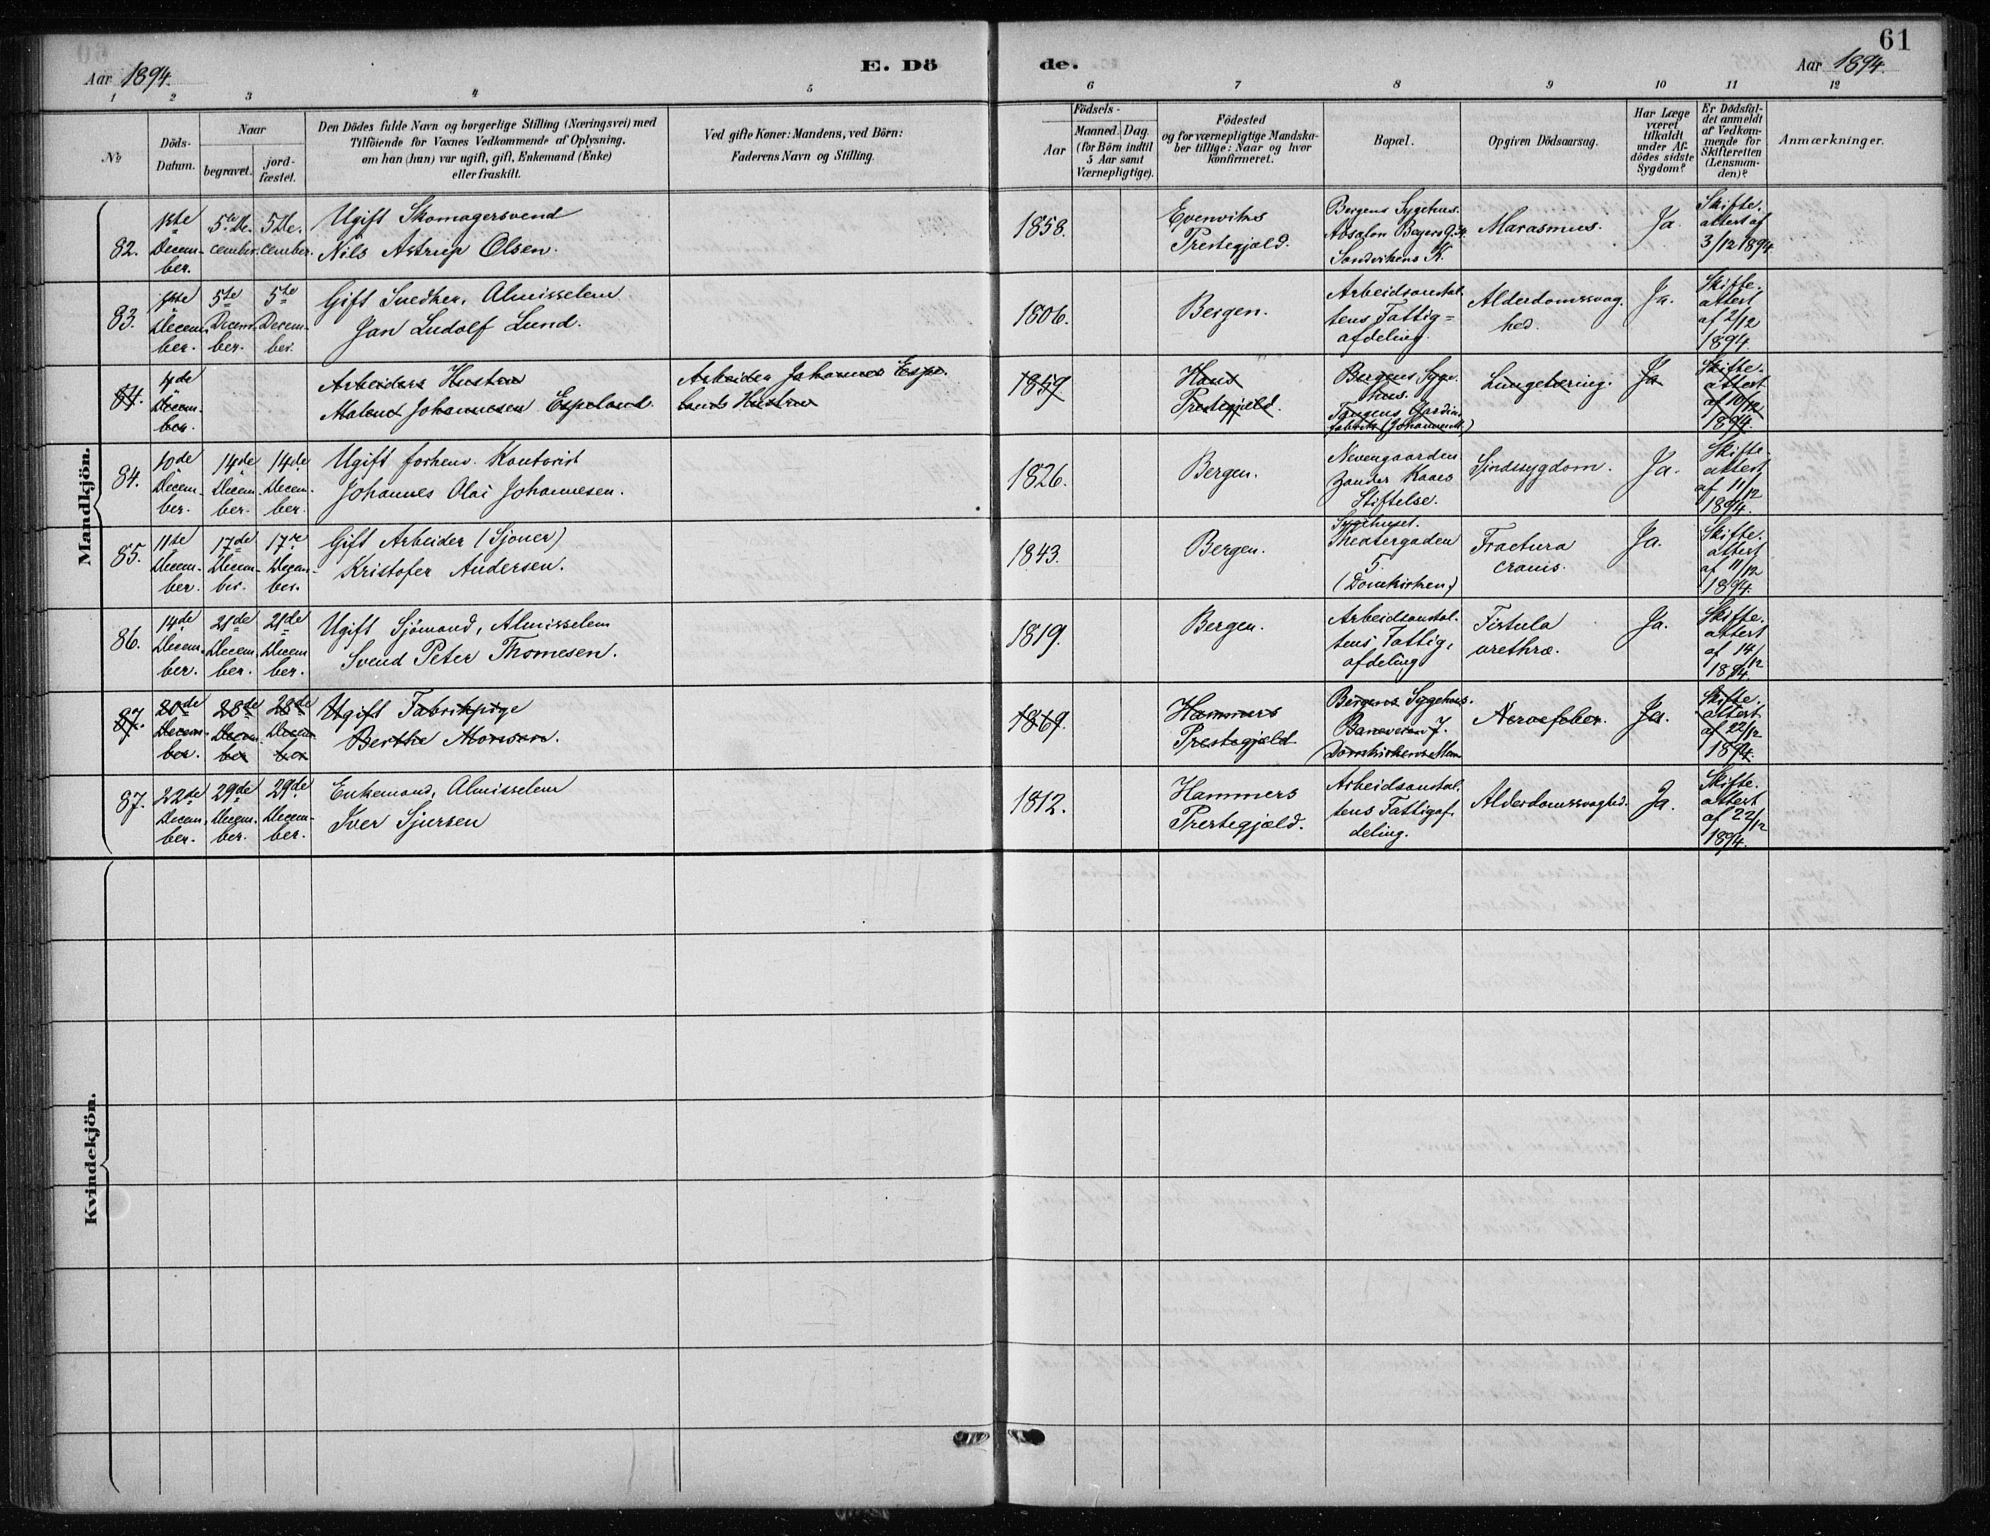 61
Aar 1894.
E. Dö
de.
Aar 1894.
1 2 3 4 5 6 7 8 9 10 11 12
No
Döds-
Datum.
Naar
begravet.
jord-
fæstet.
Den Dödes fulde Navn og borgerlige Stilling (Næringsvei) med
Tilföiende for Voxnes Vedkommende af Oplysning,
om han (hun) var ugift, gift, Enkemand (Enke)
eller fraskilt.
Ved gifte Koner: Mandens, ved Börn:
Faderens Navn og Stilling.
Födsels-
Aar
Maaned. Dag.
(for Börn indtil
5 Aar samt
Værnepligtige).
Födested
og for værnepligtige Mandska-
ber tillige: Naar og hvor
konfirmeret.
Bopæl.
Opgiven Dödsaarsag.
Har Læge
været
tilkaldt
under Af-
dödes sidste
Sygdom?
Er Dödsfal-
det anmeldt
af Vedkom-
mende for
Skifteretten
(Lensman-
den)?
Anmærkninger.
Mandkjön.
82.
1ste
Decem-
ber.
5te De-
cember.
5 De-
cember.
Ugift Skomagersvend
Nils Astrup Olsen.
1858.
Evenviks
Prestegjæld.
Bergens Sygehus.
Absalon Beyers G.
Sandvikens K.
Marasmus.
Ja.
Skifte-
attest af
3/12 1894.
83.
1ste
Decem-
ber.
5te
Decem-
ber.
5te
Decem-
ber.
Gift Snedker, Almisselem
Jan Ludolf Lund.
1806.
Bergen.
Arbeidsanstal-
tens Fattig-
afdeling.
Alderdomssvag-
hed.
Ja.
Skifte-
attest
af 2/12
1894.
84.
4de
Decem-
ber.
Arbeiders Hustru
Malene Johannesen Espeland.
Arbeider Johannes Espe-
lands Hustru
1859
Haus
Prestegjæld.
Bergens Syge-
hus.
Fangens Gardin-
fabrik (Johannes M.)
Lungetæring.
Ja
Skifte-
attest
af 10/12
1894.
84.
10de
Decem-
ber.
14de
Decem-
ber.
14de
Decem-
ber.
Ugift forhenv. Kontorist
Johannes Olai Johannesen.
1826.
Bergen.
Nevengaarden
Zander Kaaes
Stiftelse.
Sindssygdom.
Ja.
Skifte-
attest
af 11/12
1894.
85.
11te
Decem-
ber.
17de
Decem-
ber.
17de
Decem-
ber.
Gift Arbeider (Sjouer)
Kristofer Andersen.
1843.
Bergen.
Sygehuset.
Theatergaden
5.
(Domkirken.)
Fractura
cranis.
Ja.
Skifte-
attest
af 11/12
1894.
86.
14de
Decem-
ber.
21de
Decem-
ber.
21de
Decem-
ber.
Ugift Sjömand, Almisselem
Svend Peter Thomesen.
1819.
Bergen.
Arbeidsanstal-
tens Fattig-
afdeling
Fistula
urethræ.
Ja.
Skifte-
attest
af 14/12
1894.
87.
20de
Decem-
ber.
28de
Decem-
ber
28de
Decem-
ber
Ugift Fabrikpige
Berthe Monsen.
1869.
Hammers
Prestegjæld
Bergens Sygehus.
Baneveien 7.
Domkirkens Men
Nervefeber.
Ja.
Skifte-
attest
af 22/12
1894.
87.
22de
Decem-
ber.
29de
Decem-
ber.
29de
Decem-
ber.
Enkemand, Almisselem
Iver Sjursen
1812.
Hammers
Prestegjæld.
Arbeidsanstal-
tens Fattigaf-
deling.
Alderdomssvaghed.
Ja.
Skifte-
attest
af 22/12
1894.
Kvindekjön.